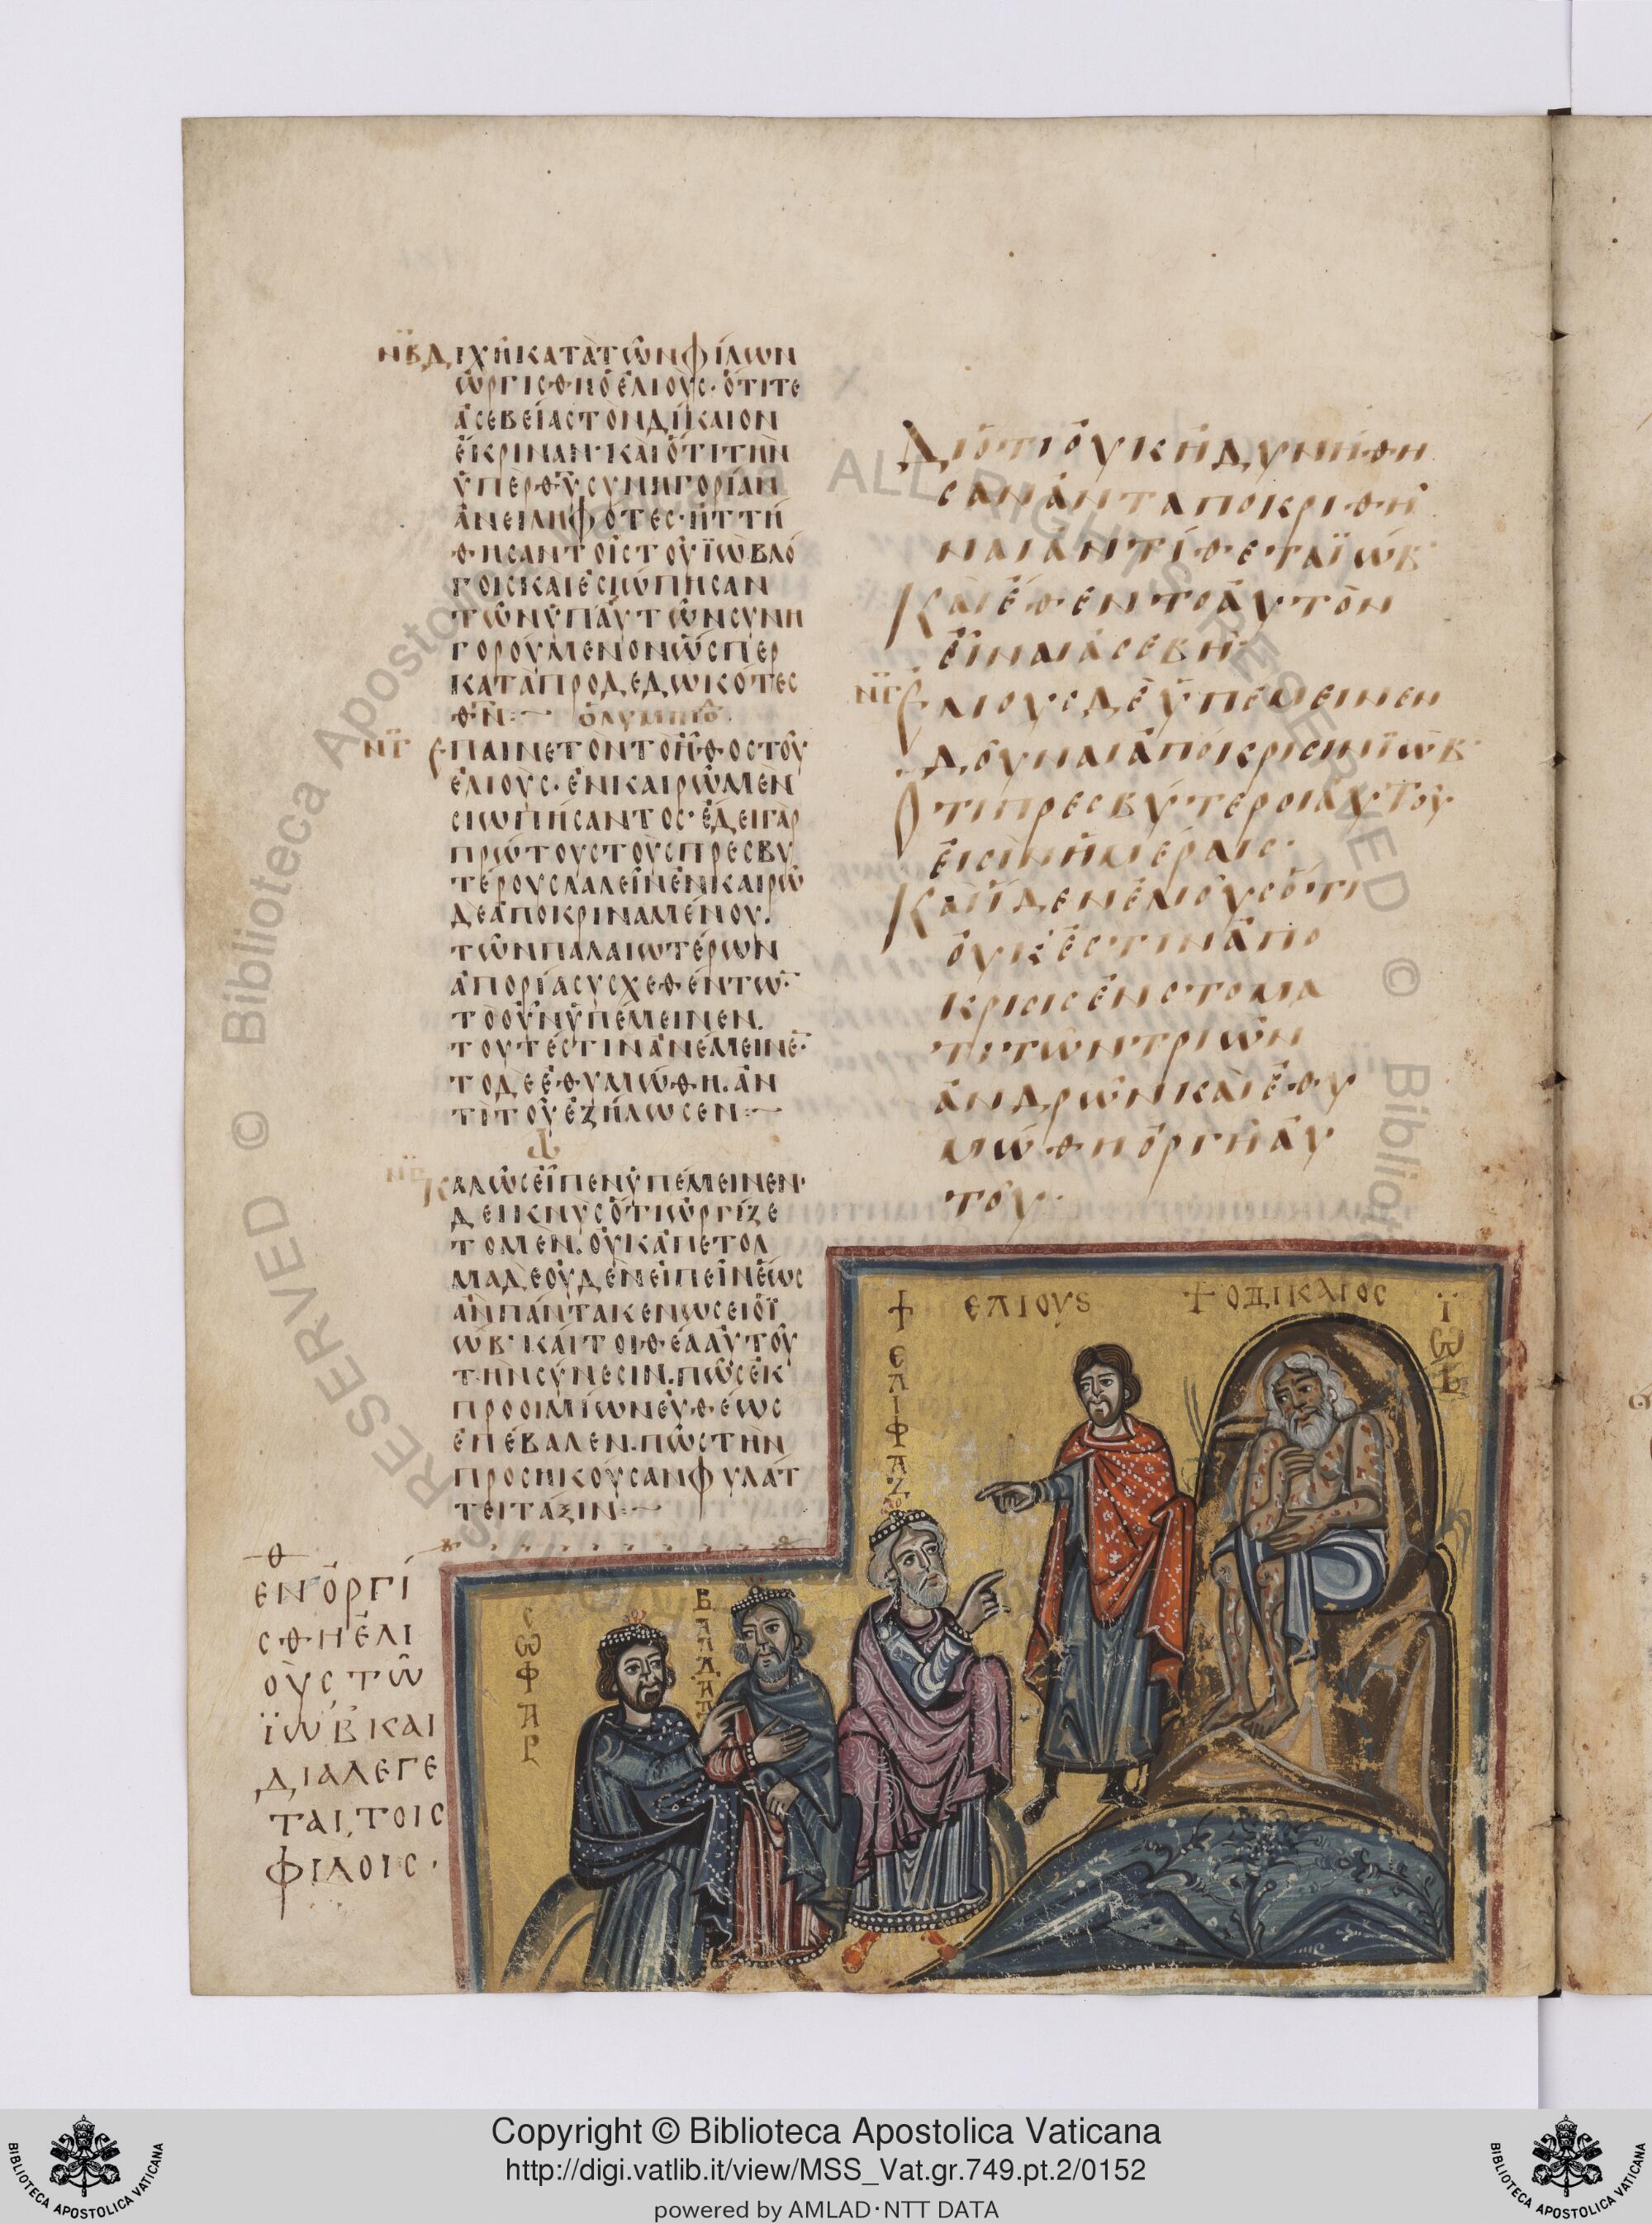 ΝΒ ΔΙΧΗ ΚΑΤΑ ΤῶΝ ΦΊΛΩΝ
ὨΡΓΙΣΘΗ Ὁ ἘΛΙΟῪΣ· ὍΤΙ ΤΕ
ἈΣΕΒΕΊΑΣ ΤῸΝ ΔΊΚΑΙΟΝ
ἜΚΡΙΝΑΝ· ΚΑΙ ὍΤΙ ΤῊΝ
ὙΠῈΡ ΘΥ ΣΥΝΗΓΟΡΊΑΝ
ἈΝΕΙΛΗΦΌΤΕΣ· ἩΤΤΉ
ΘΗΣΑΝ ΤΟῖΣ ΤΟΥ ΪῺΒ ΛΌ
ΓΟΙΣ ΚΑΙ ἘΣΙΏΠΗΣΑΝ
ΤῶΝ ὙΠ ΑΥΤῶΝ ΣΥΝΗ
ΓΟΡΟΎΜΕΝΟΝ ὭΣΠΕΡ
ΚΑΤΑΠΡΟΔΕΔΩΚΌΤΕΣ
ΘΝ:~ ὈΛΥΜΠΙΟ
ΝΓ ἘΠΑΙΝΕΤῸΝ ΤῸ ἮΘΟΣ ΤΟῦ
ἘΛΙΟῪΣ· ἘΝ ΚΑΙΡῶ ΜῈΝ
ΣΙΩΠΉΣΑΝΤΟΣ· ἜΔΕΙ ΓᾺΡ
ΠΡΏΤΟΥΣ ΤΟῪΣ ΠΡΕΣΒΥ
ΤΈΡΟΥΣ ΛΑΛΕῖΝ ἘΝ ΚΑΙΡῶ
ΔΕ ἈΠΟΚΡΙΝΑΜΈΝΟΥ.
ΤῶΝ ΠΑΛΑΙΩΤΈΡΩΝ
ἈΠΟΡΊΑ ΣΥΣΧΕΘΈΝΤΩ
ΤῸ ΟὖΝ ὙΠΈΜΕΙΝΕΝ.
ΤΟΥΤΈΣΤΙΝ ἈΝΈΜΕΙΝΕ
ΤΟ ΔΕ ἘΘΥΜΏΘΗ. ἈΝ
ΤῚ ΤΟῦ ἘΖΉΛΩΣΕΝ:~
ΚΑΛῶΣ ΕἾΠΕΝ ὙΠΈΜΕΙΝΕΝ·
ΔΕΙΚΝῪΣ ὍΤΙ ὨΡΓΊΖΕ
ΤΟ ΜΕΝ. ΟΥΚ ἈΠΕΤΌΛ
ΜΑ ΔΕ ΟΥΔῈΝ ΕἸΠΕῖΝ ἝΩΣ
ἊΝ ΠΆΝΤΑ ΚΕΝΏΣΕΙ Ὁ Ϊ
ῺΒ· ΚΑΊΤΟΙ ΘΈΑ ΑΥΤΟῦ
ΤῊΝ ΣΎΝΕΣΙΝ. ΠῶΣ ἘΚ
ΠΡΟΟΙΜΊΩΝ ΕΥΘΈΩΣ
ἘΠΈΒΑΛΕΝ. ΠῶΣ ΤῊΝ
ΠΡΟΣΗΚΟΥΣΑΝ ΦΥΛΆΤ
ΤΕΙ ΤΆΞΙΝ:~
ΔΙΌΤΙ ΟΥΚ ἨΔΥΝΉΘΗ
ΣΑΝ ἈΝΤΑΠΟΚΡΙΘῆ
ΝΑΙ ἈΝΤΊΘΕΤΑ ΪῺΒ·
ΚΑῚ ἜΘΕΝΤΟ ΑΥΤῸΝ
ΕἾΝΑΙ ἈΣΕΒῆ·
ΝΓ ἘΛΙΟΥΣ ΔῈ ὙΠΈΜΕΙΝΕΝ
ΔΟῦΝΑΙ ἈΠΌΚΡΙΣΙΝ ΪῺΒ·
ὍΤΙ ΠΡΕΣΒΎΤΕΡΟΙ ΑΥΤΟΥ
ΕἸΣῚΝ ἩΜΈΡΑΙΣ·
ΚΑῚ ΪΔΕΝ ἘΛΙΟΥΣ ὍΤΙ
ΟΥΚ ἜΣΤΙΝ ἈΠΌ
ΚΡΙΣΙΣ ἘΝ ΣΤΌΜΑ
ΤΙ ΤῶΝ ΤΡΙῶΝ
ἈΝΔΡῶΝ ΚΑῚ ἘΘΥ
ΜΏΘΗ ὈΡΓῊ ΑΥ
ΤΟΥ·
ΕΝ ὈΡΓΊ
ΣΘΗ ἘΛΙ
ΟῪΣ Τῶ
ΪῺΒ ΚΑΙ
ΔΙΑΛΕΓΕ
ΤΑΙ ΤΟΙΣ
ΦΙΛΟΙΣ·
ΕΛΙΟΥS
+ Ο ΔΙΚΑΙΟΣ ΪΩΒ
ΕΛΙΦΑΖ
ΒΑΛΔΑΔ
ΣΩΦΑΡ
ALL RIGHTS RESERVED © Biblioteca Apostolica Vaticana
Copyright © Biblioteca Apostolica Vaticana
http://digi.vatlib.it/view/MSS_Vat.gr.749.pt.2/0152
powered by AMLAD·NTT DATA
BIBLIOTECA APOSTOLICA VATICANA
BIBLIOTECA APOSTOLICA VATICANA